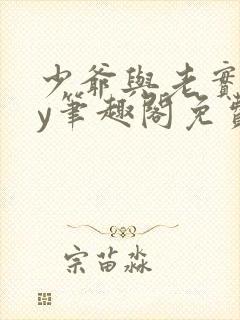 少爺與老實
y筆趣閣免費
宗苗淼